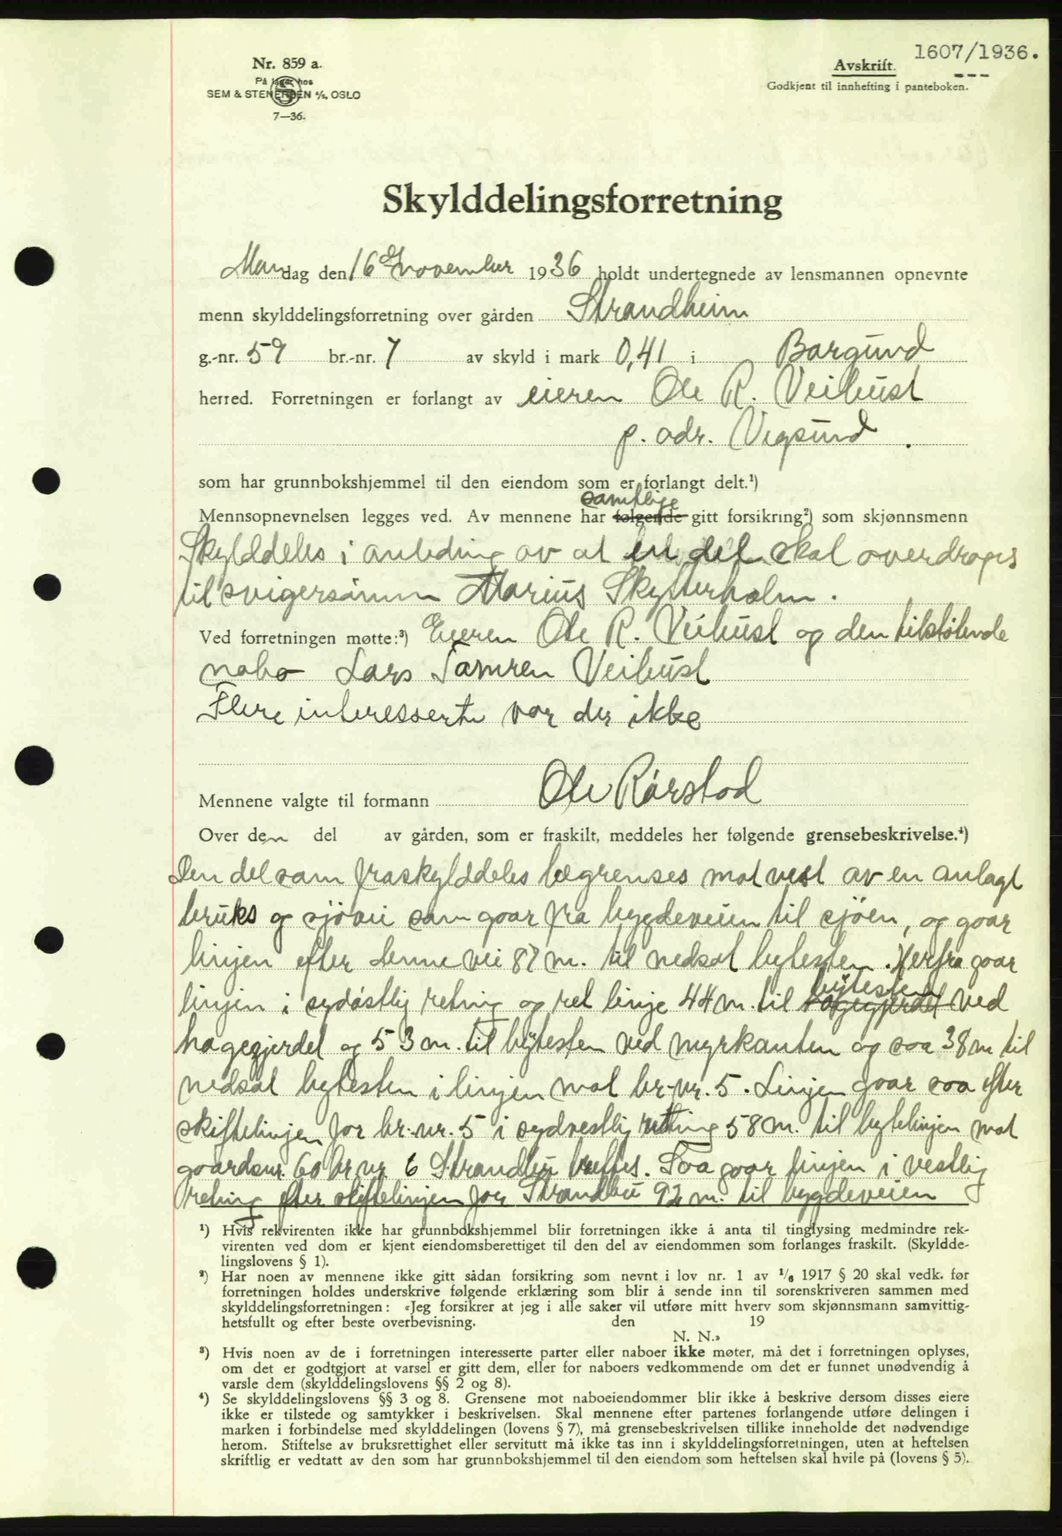 1607/1936.
Nr. 859 a.
På lager hos
SEM & STENERSEN A/S, OSLO
7—36.
Avskrift.
Godkjent til innhefting i panteboken.
Skylddelingsforretning
Mandag den 16de november 1936 holdt undertegnede av lensmannen opnevnte
menn skylddelingsforretning over gården Strandheim
g.-nr. 59 br.-nr. 7 av skyld i mark 0,41 i Borgund
herred. Forretningen er forlangt av eieren Ole R. Veibust
p. adr. Vegsund.
som har grunnbokshjemmel til den eiendom som er forlangt delt.¹)
samtlige
Mennsopnevnelsen legges ved. Av mennene har følgende gitt forsikring²) som skjønnsmenn
Skylddeles i anledning av at en del skal overdrages
til svigersønnen Marius Skytterholm.
Ved forretningen møtte:³) Eieren Ole R. Veibust og den tilstøtende
nabo Lars Tomren Veibust
Flere interesserte var der ikke
Mennene valgte til formann Ole Rørstad
Over den del av gården, som er fraskilt, meddeles her følgende grensebeskrivelse.⁴)
Den del som fraskylddeles begrenses mot vest av en anlagt
bruks og sjövei som goar fra bygdeveien til sjöen, og goar
linjen efter denne vei 87 m. til nedsat bytesten. Herfra goar
bytesten
linjen i sydöstlig retning og ret linje 44 m. til hagegjerdet ved
hagegjerdet og 53 m. til bytesten ved myrkanten og soa 38 m til
nedsat bytesten i linjen mot br.-nr. 5. Linjen goar soa efter
skiftelinjen for br.-nr. 5 i sydvestlig retning 58 m. til bytelinjen mot
goardsnr. 60 br nr 6 Strandbu treffes. Soa goar linjen i vestlig
retning efter skiftelinjen for Strandbu 92 m. til bygdeveien
¹) Hvis rekvirenten ikke har grunnbokshjemmel blir forretningen ikke å anta til tinglysing medmindre rek-
virenten ved dom er kjent eiendomsberettiget til den del av eiendommen som forlanges fraskilt. (Skyldde-
lingslovens § 1).
²) Har noen av mennene ikke gitt sådan forsikring som nevnt i lov nr. 1 av ¹/₆ 1917 § 20 skal vedk. før
forretningen holdes underskrive følgende erklæring som blir å sende inn til sorenskriveren sammen med
skylddelingsforretningen: «Jeg forsikrer at jeg i alle saker vil utføre mitt hverv som skjønnsmann samvittig-
hetsfullt og efter beste overbevisning. den 19
N. N.»
³) Hvis noen av de i forretningen interesserte parter eller naboer ikke møter, må det i forretningen oplyses,
om det er godtgjort at varsel er gitt dem, eller for naboers vedkommende om det er funnet unødvendig å
varsle dem (skylddelingslovens §§ 2 og 8).
⁴) Se skylddelingslovens §§ 3 og 8. Grensene mot naboeiendommer blir ikke å beskrive dersom disses eiere
ikke er tilstede og samtykker i beskrivelsen. Skal mennene efter partenes forlangende utføre delingen i
marken i forbindelse med skylddelingen (lovens § 7), må grensebeskrivelsen tillike inneholde det nødvendige
herom. Stiftelse av bruksrettighet eller servitutt må ikke tas inn i skylddelingsforretningen, uten at heftelsen
skriftlig er vedtatt av den som har grunnbokshjemmel til den eiendom som heftelsen skal hvile på (lovens § 5).